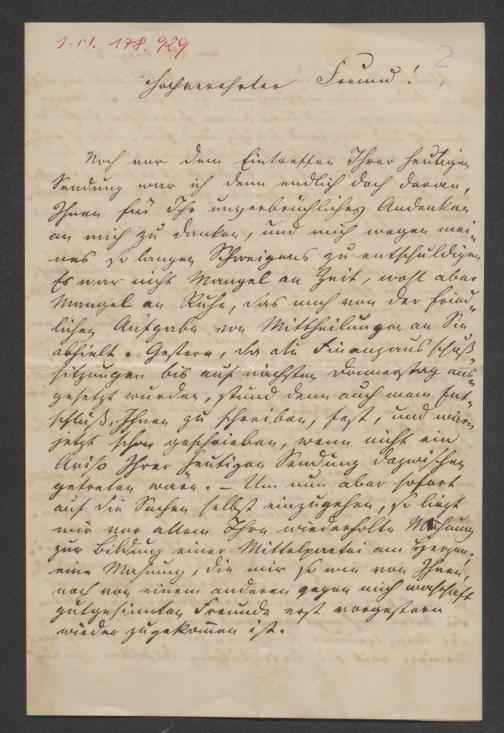 J. N. 178.929
Hochverehrter Freund!
Noch vor dem Eintreffen Ihrer heutigen
Sendung war ich denn endlich doch daran,
Ihnen für Ihr unverbrüchliches Andenken
an mich zu danken, und mich wegen mei-
nes so langen Schweigens zu entschuldigen.
Es war nicht Mangel an Zeit, wohl aber
Mangel an Ruhe, das mich von der fried-
lichen Aufgabe von Mittheilungen an Sie
abhielt. Gestern, da die Finanzausschuß-
sitzungen bis auf nächsten Donnerstag aus-
gesetzt wurden, stund denn auch mein Ent-
schluß, Ihnen zu schreiben, fest, und wäre
jetzt schon geschrieben, wenn nicht ein
Aviso Ihrer heutigen Sendung dazwischen
getreten wäre. – Um nun aber sofort
auf die Sachen selbst einzugehen, so liegt
mir vor allem Ihre wiederholte Mahnung
zur Bildung einer Mittelpartei am Herzen,
eine Mahnung, die mir so wie von Ihnen,
noch von einem anderen gegen mich
gutgesinnten Freunde erst vorgestern
wieder zugekommen ist.